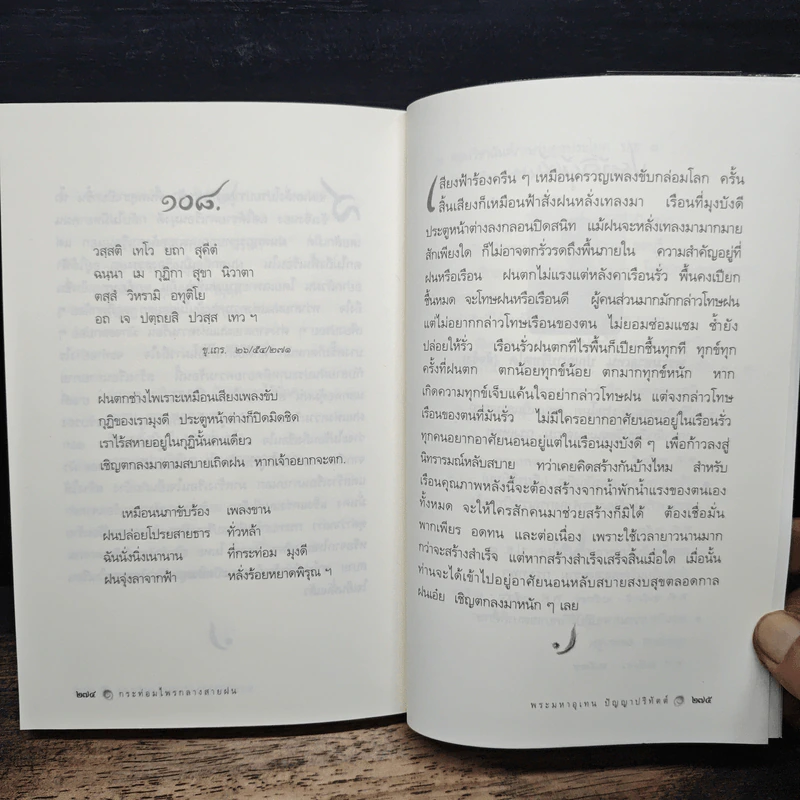 ๑๐๘.
วสฺสติ เทโว ยถา สุคีตํ
ฉนฺนา เม กุฏิกา สุขา นิวาตา
ตสฺสํ วิหรามิ อทุติโย
อถ เจ ปตฺถยสิ ปวสฺส เทว ฯ
ขุ.เถร. ๒๖/๕๔/๒๗๑
ฝนตกช่างไพเราะเหมือนเสียงเพลงขับ
กุฏิของเรามุงดี ประตูหน้าต่างก็ปิดมิดชิด
เราไร้สหายอยู่ในกุฏินั้นคนเดียว
เชิญตกลงมาตามสบายเถิดฝน หากเจ้าอยากจะตก.
เหมือนนภาขับร้อง เพลงขาน
ฝนปล่อยโปรยสายธาร ทั่วหล้า
ฉันนั่งนิ่งเนานาน ที่กระท่อม มุงดี
ฝนจุ่งลาจากฟ้า หลั่งร้อยหยาดพิรุณ ฯ
๒๗๔ กระท่อมไพรกลางสายฝน
เสียงฟ้าร้องครืน ๆ เหมือนครวญเพลงขับกล่อมโลก ครั้น
สิ้นเสียงก็เหมือนฟ้าสั่งฝนหลั่งเทลงมา เรือนที่มุงบังดี
ประตูหน้าต่างลงกลอนปิดสนิท แม้ฝนจะหลั่งเทลงมามากมาย
สักเพียงใด ก็ไม่อาจตกรั่วรดถึงพื้นภายใน ความสำคัญอยู่ที่
ฝนหรือเรือน ฝนตกไม่แรงแต่หลังคาเรือนรั่ว พื้นคงเปียก
ชื้นหมด จะโทษฝนหรือเรือนดี ผู้คนส่วนมากมักกล่าวโทษฝน
แต่ไม่อยากกล่าวโทษเรือนของตน ไม่ยอมซ่อมแซม ซ้ำยัง
ปล่อยให้รั่ว เรือนรั่วฝนตกทีไรพื้นก็เปียกชื้นทุกที ทุกข์ทุก
ครั้งที่ฝนตก ตกน้อยทุกข์น้อย ตกมากทุกข์หนัก หาก
เกิดความทุกข์เจ็บแค้นใจอย่ากล่าวโทษฝน แต่จงกล่าวโทษ
เรือนของตนที่มันรั่ว ไม่มีใครอยากอาศัยนอนอยู่ในเรือนรั่ว
ทุกคนอยากอาศัยนอนอยู่แต่ในเรือนมุงบังดี ๆ เพื่อก้าวลงสู่
นิทรารมณ์หลับสบาย ทว่าเคยคิดสร้างกันบ้างไหม สำหรับ
เรือนคุณภาพหลังนี้จะต้องสร้างจากน้ำพักน้ำแรงของตนเอง
ทั้งหมด จะให้ใครสักคนมาช่วยสร้างก็มิได้ ต้องเชื่อมั่น
พากเพียร อดทน และต่อเนื่อง เพราะใช้เวลายาวนานมาก
กว่าจะสร้างสำเร็จ แต่หากสร้างสำเร็จเสร็จสิ้นเมื่อใด เมื่อนั้น
ท่านจะได้เข้าไปอยู่อาศัยนอนหลับสบายสงบสุขตลอดกาล
ฝนเอ๋ย เชิญตกลงมาหนัก ๆ เลย
พระมหาอุเทน ปัญญาปริทัตต์ ๒๗๕